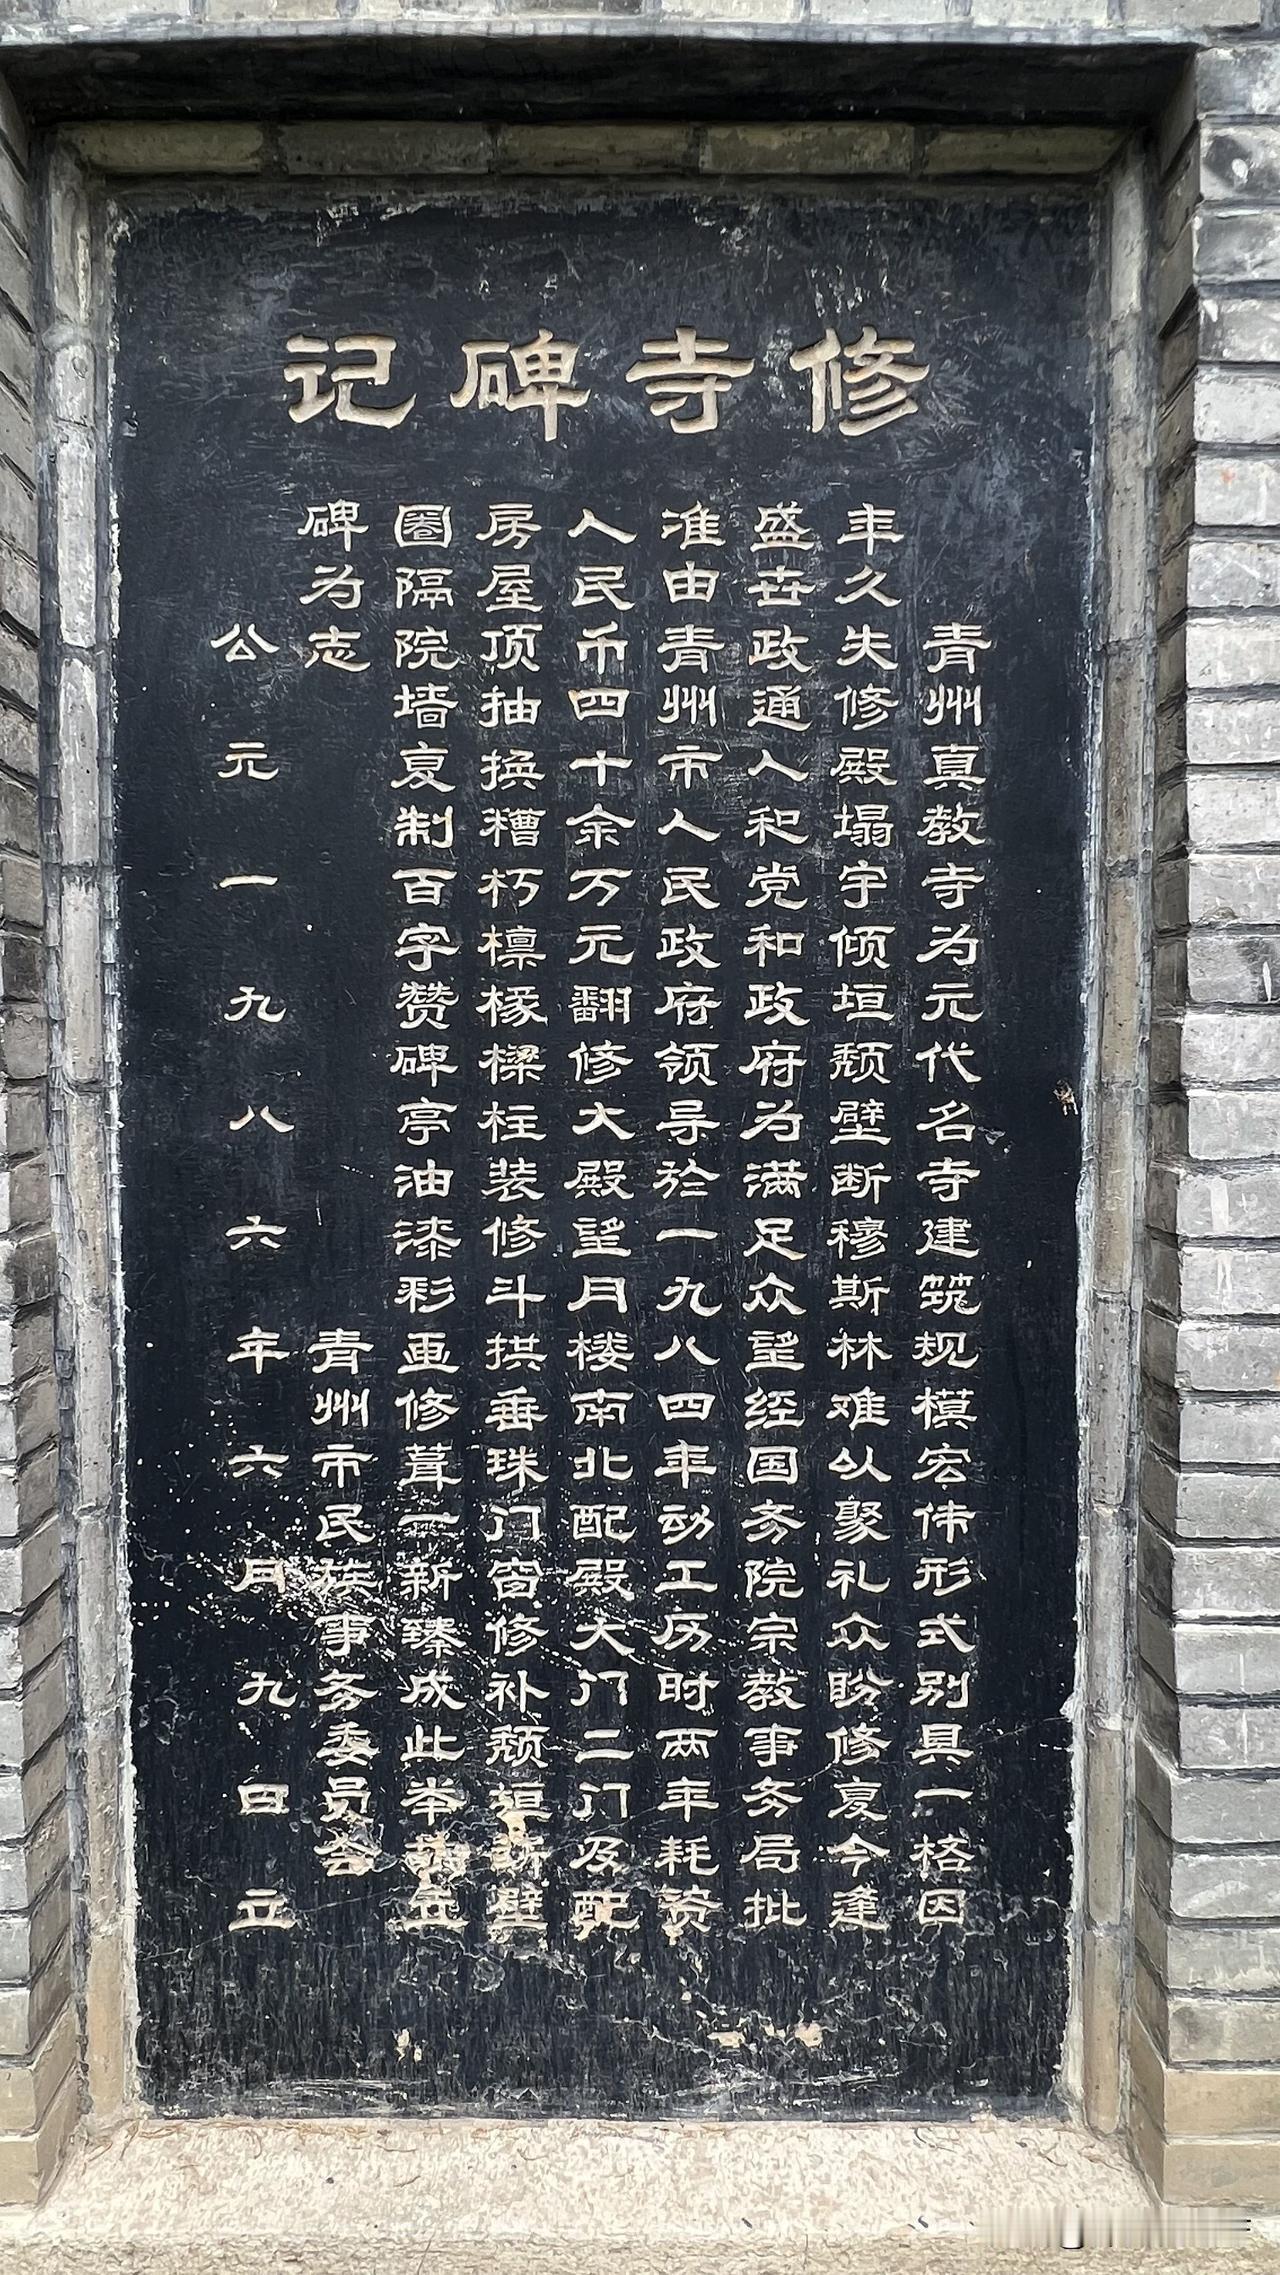 修寺碑记
青州真教寺为元代名寺建筑规模宏伟形式别具一格因
年久失修殿塌宇倾垣颓壁断穆斯林难以聚礼众盼修复今逢
盛世政通人和党和政府为满足众望经国务院宗教事务局批
准由青州市人民政府领导於一九八四年动工历时两年耗资
人民币四十余万元翻修大殿望月楼南北配殿大门二门及配
房屋顶抽换糟朽檩椽樑柱装修斗拱垂珠门窗修补颓垣断壁
圈隔院墙复制百字赞碑亭油漆彩画修葺一新臻成此举立
碑为志
青州市民族事务委员会
公元一九八六年六月九日立